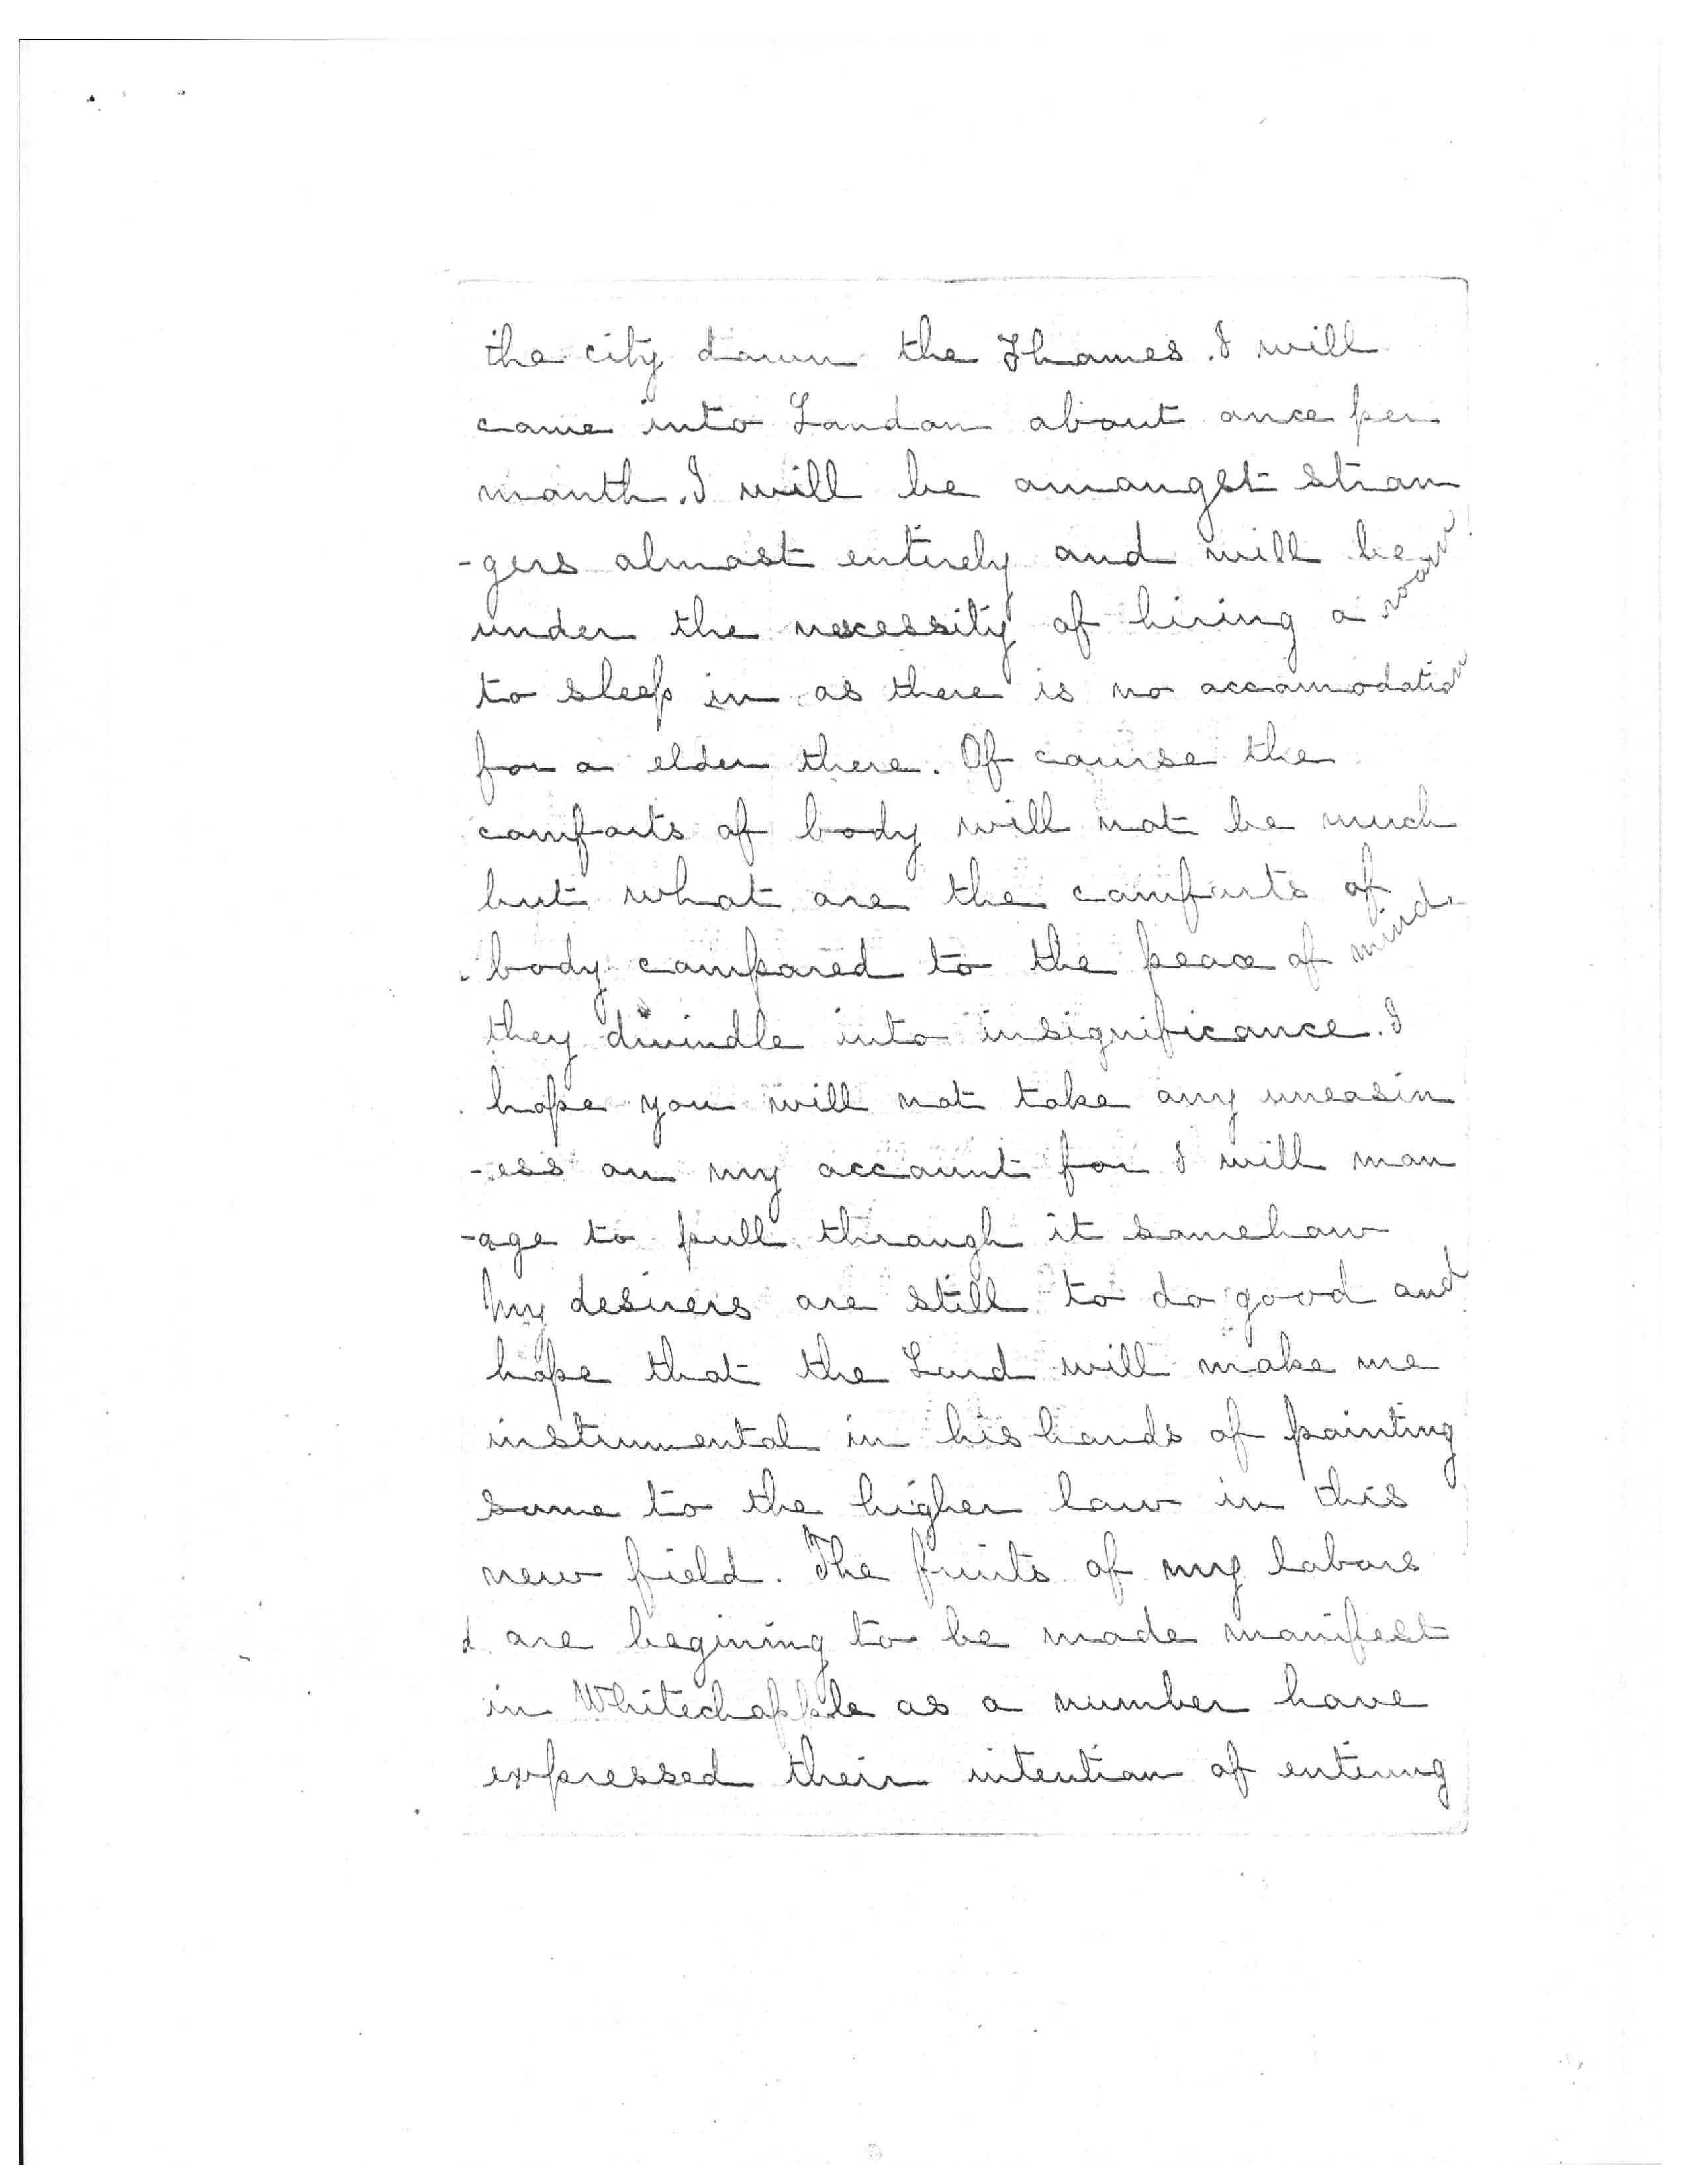 the city down the Thames. I will
come into London about once per
month. I will be amongst stran
-gers almost entirely and will be
under the necessity of hiring a room
to sleep in as there is no accomodation
for a elder there. Of course the
comforts of body will not be much
but what are the comforts of
body compared to the peace of mind.
they dwindle into insignificance. I
hope you will not take any uneasin
-ess on my account for I will man
-age to pull through it somehow
My desiers are still to do good and
hope that the Lord will make me
instrumental in his hands of pointing
some to the higher law in this
new field. The fruits of my labors
are begining to be made manifest
in Whitechapple as a number have
expressed their intention of entering